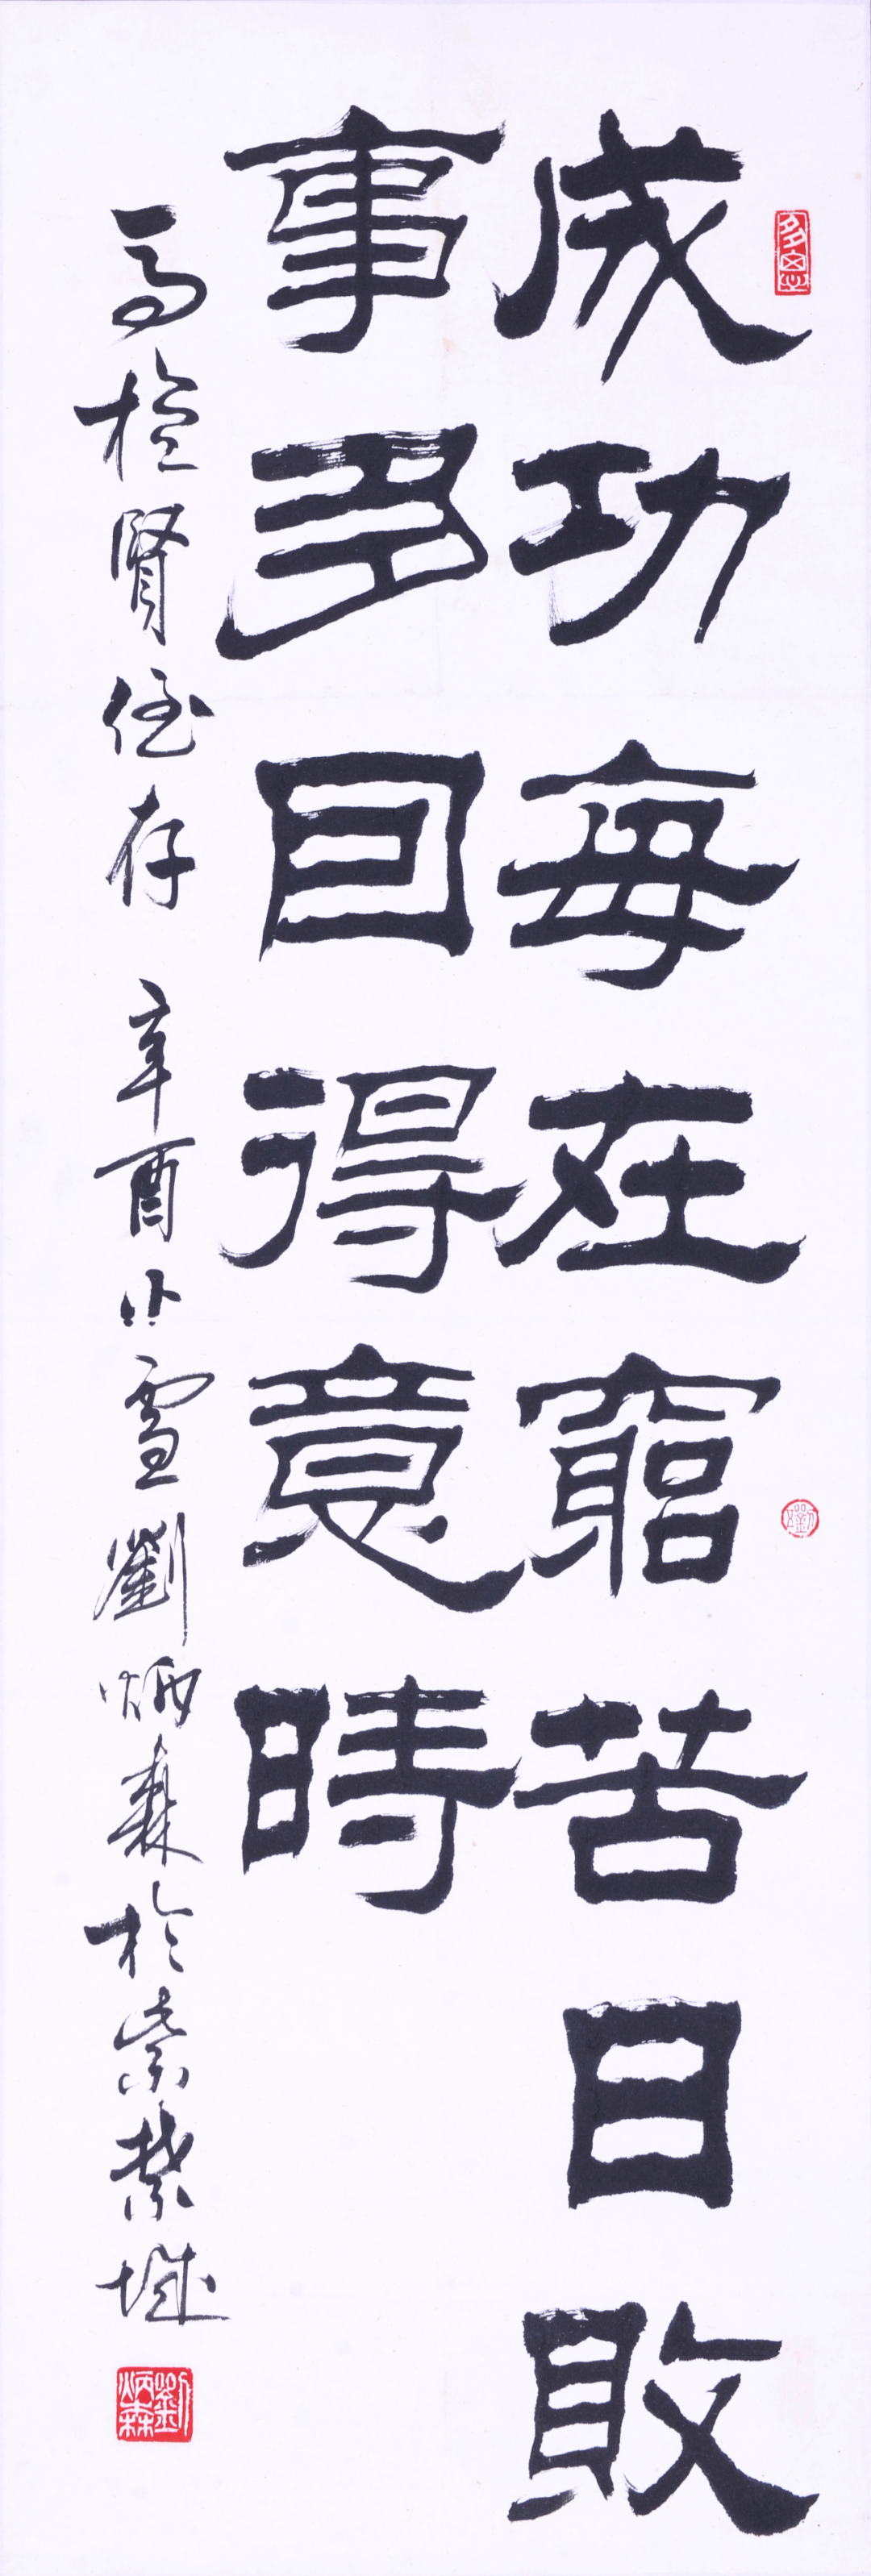 成功每在窮苦日敗
事多因得意時
馬檢賢侄存 辛酉小雪劉炳森於紫禁城
劉炳森